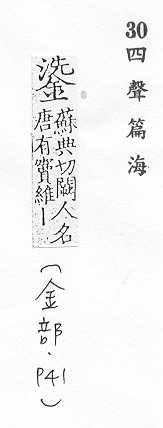 30四聲篇海
鍌
蘇典切闕人名
唐有竇維丨
(金部.P41)